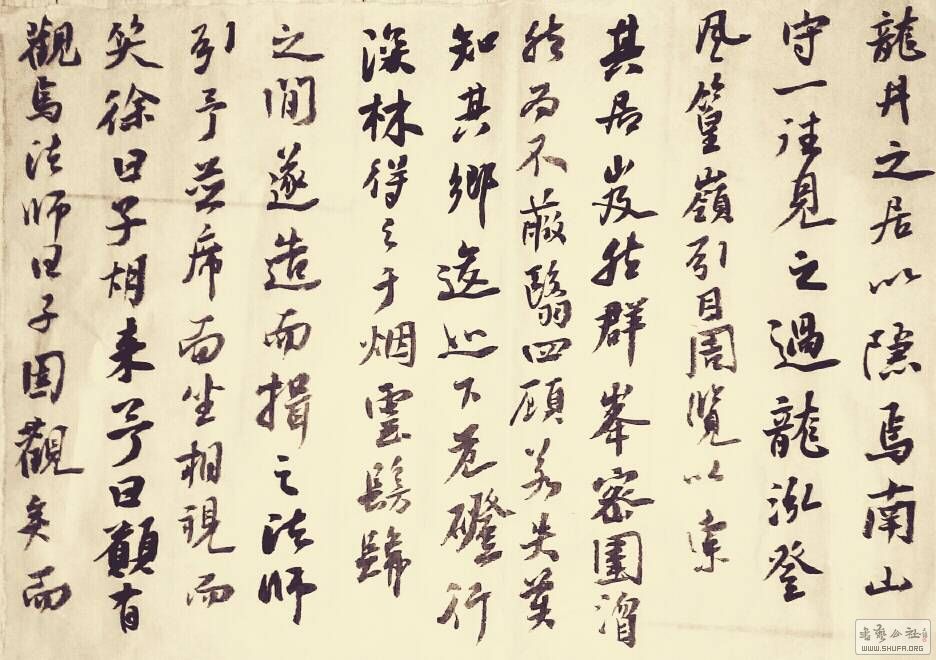 龍井之居以隱焉南山
守一往見之過龍泓登
風篁嶺引目周覽以索
其居岌然群峯密圍溜
然而不蔽翳四顧若失莫
知其鄉逡巡下危磴行
深林得之于烟雲髣髴
之間遂造而揖之法師
引予並席而坐相視而
笑徐曰子胡來予曰願有
觀焉法師曰子固觀矣而
書藝公社
WWW.SHUFA.ORG